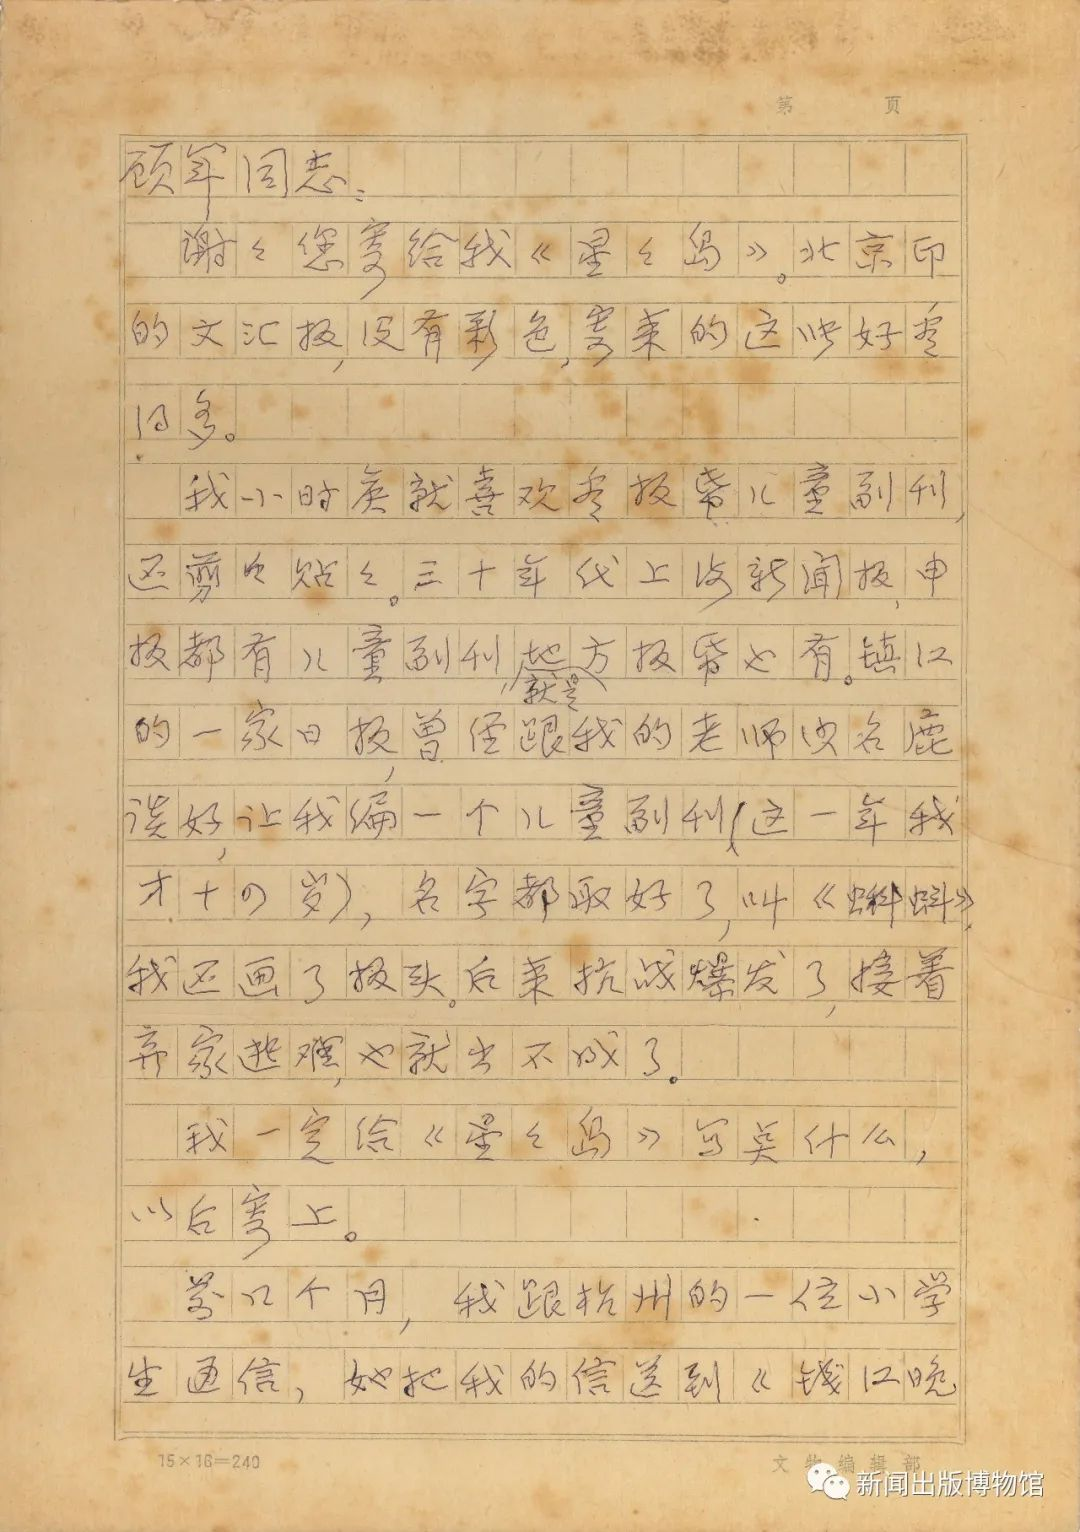 第 页
顾军同志:
谢々您寄给我《星々岛》。北京印
的文汇报,没有彩色,寄来的这些好看
得多。
我小时候就喜欢看报纸儿童副刊,
还剪々贴々。三十年代上海新闻报,申
报都有儿童副刊,地方报纸也有。镇江
就是
的一家日报,曾经跟我的老师沙名鹿
谈好,让我编一个儿童副刊(这一年我
才十四岁),名字都取好了,叫《蝌蚪》,
我还画了报头。后来抗战爆发了,接着
弃家逃难,也就出不成了。
我一定给《星々岛》写类什么,
以后寄上。
前几个月,我跟杭州的一位小学
生通信,她把我的信送到《钱江晚
15×16=240
文物编辑部
新闻出版博物馆